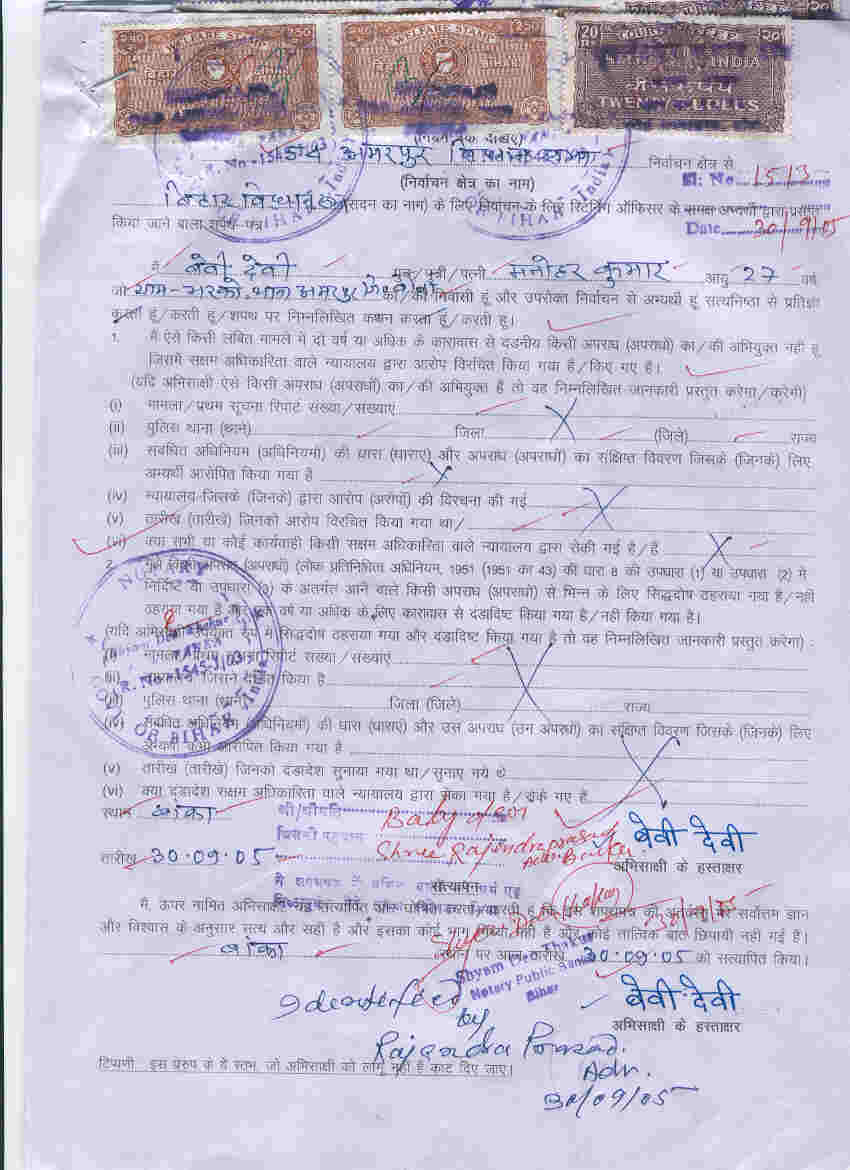 2.50 WELFARE STAMP 2.50
बिहार बिहार
2.50 WELFARE STAMP 2.50
बिहार बिहार
20 COURT FEE २०
INDIA
बीस रुपये
TWENTY RUPEES
अमरपुर निर्वाचन क्षेत्र से
(निर्वाचन क्षेत्र का नाम)
Sl. No. 1513
बिहार विधान (सदन का नाम) के लिए निर्वाचन के लिए रिटर्निंग ऑफिसर के समक्ष अभ्यर्थी द्वारा प्रस्तुत
किया जाने वाला शपथ-पत्र
Date 30/9/05
मैं बेवी देवी पुत्र/पुत्री/पत्नी मनोहर कुमार आयु 27 वर्ष
जो ग्राम- थाना अमरपुर का/की निवासी हूं और उपरोक्त निर्वाचन से अभ्यर्थी हूं सत्यनिष्ठा से प्रतिज्ञा
करता हूं/करती हूं/शपथ पर निम्नलिखित कथन करता हूं/करती हूं।
1. मैं ऐसे किसी लंबित मामले में दो वर्ष या अधिक के कारावास से दंडनीय किसी अपराध (अपराधों) का/की अभियुक्त नहीं हूं
जिसमें सक्षम अधिकारिता वाले न्यायालय द्वारा आरोप विरचित किया गया है/किए गए है।
(यदि अभिसाक्षी ऐसे किसी अपराध (अपराधों) का/की अभियुक्त है तो वह निम्नलिखित जानकारी प्रस्तुत करेगा/करेगी)
(i) मामला/प्रथम सूचना रिपोर्ट संख्या/संख्याएं
(ii) पुलिस थाना (थाने) जिला (जिले) राज्य
(iii) संबंधित अधिनियम (अधिनियमों) की धारा (धाराएं) और अपराध (अपराधों) का संक्षिप्त विवरण जिसके (जिनके) लिए
अभ्यर्थी आरोपित किया गया है
(iv) न्यायालय जिसके (जिनके) द्वारा आरोप (अरोपों) की विरचना की गई
(v) तारीख (तारीखें) जिनको आरोप विरचित किया गया था/
(vi) क्या सभी या कोई कार्यवाही किसी सक्षम अधिकारिता वाले न्यायालय द्वारा रोकी गई है/हैं
2. अपराध (अपराधों) (लोक प्रतिनिधित्व अधिनियम, 1951 (1951 का 43) की धारा 8 की उपधारा (1) या उपधारा (2) में
निर्दिष्ट या उपधारा (3) के अंतर्गत आने वाले किसी अपराध (अपराधों) से भिन्न के लिए सिद्धदोष ठहराया गया है/नहीं
ठहराया गया है और एक वर्ष या अधिक के लिए कारावास से दंडादिष्ट किया गया है/नहीं किया गया है।
(यदि अभिसाक्षी उपर्युक्त रूप में सिद्धदोष ठहराया गया और दंडादिष्ट किया गया है तो वह निम्नलिखित जानकारी प्रस्तुत करेगा) :
(i) मामला/प्रथम सूचना रिपोर्ट संख्या/संख्याएं
(ii) न्यायालय जिसने दंडित किया है
(iii) पुलिस थाना (थाने) जिला (जिले) राज्य
(iv) संबंधित अधिनियम (अधिनियमों) की धारा (धाराएं) और उस अपराध (उन अपराधों) का संक्षिप्त विवरण जिसके (जिनके) लिए
अभ्यर्थी आरोपित किया गया है
(v) तारीख (तारीखें) जिनको दंडादेश सुनाया गया था/सुनाए गये थे
(vi) क्या दंडादेश सक्षम अधिकारिता वाले न्यायालय द्वारा रोका गया है/रोके गए हैं
NOTARY
GOVT. OF BIHAR (India)
R. No.-1545-1/03
स्थान बांका
श्री/श्रीमति Baby
जिसकी पहचान Shree Rajendra prasad
Adv. Banka
बेवी देवी
तारीख 30.09.05
अभिसाक्षी के हस्ताक्षर
सत्यापन
मैं, ऊपर नामित अभिसाक्षी यह सत्यापित और घोषित करता/करती हूं कि इस शपथपत्र की अंतर्वस्तु मेरे सर्वोत्तम ज्ञान
और विश्वास के अनुसार सत्य और सही है और इसका कोई भाग मिथ्या नहीं है और कोई तात्विक बात छिपायी नहीं गई है।
बांका स्थान पर आज तारीख 30.09.05 को सत्यापित किया।
Shyam Deo Thakur
Notary Public Banka
Bihar
बेवी देवी
अभिसाक्षी के हस्ताक्षर
by
Rajendra Prasad.
Adv.
30/09/05
टिप्पणी इस प्ररुप के वे स्तंभ, जो अभिसाक्षी को लागू नहीं हैं काट दिए जाए।